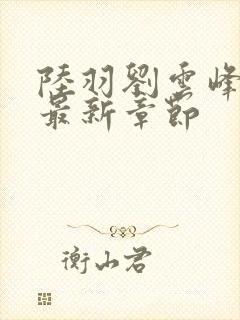 陸羽劉雲峰
最新章節
衡山君